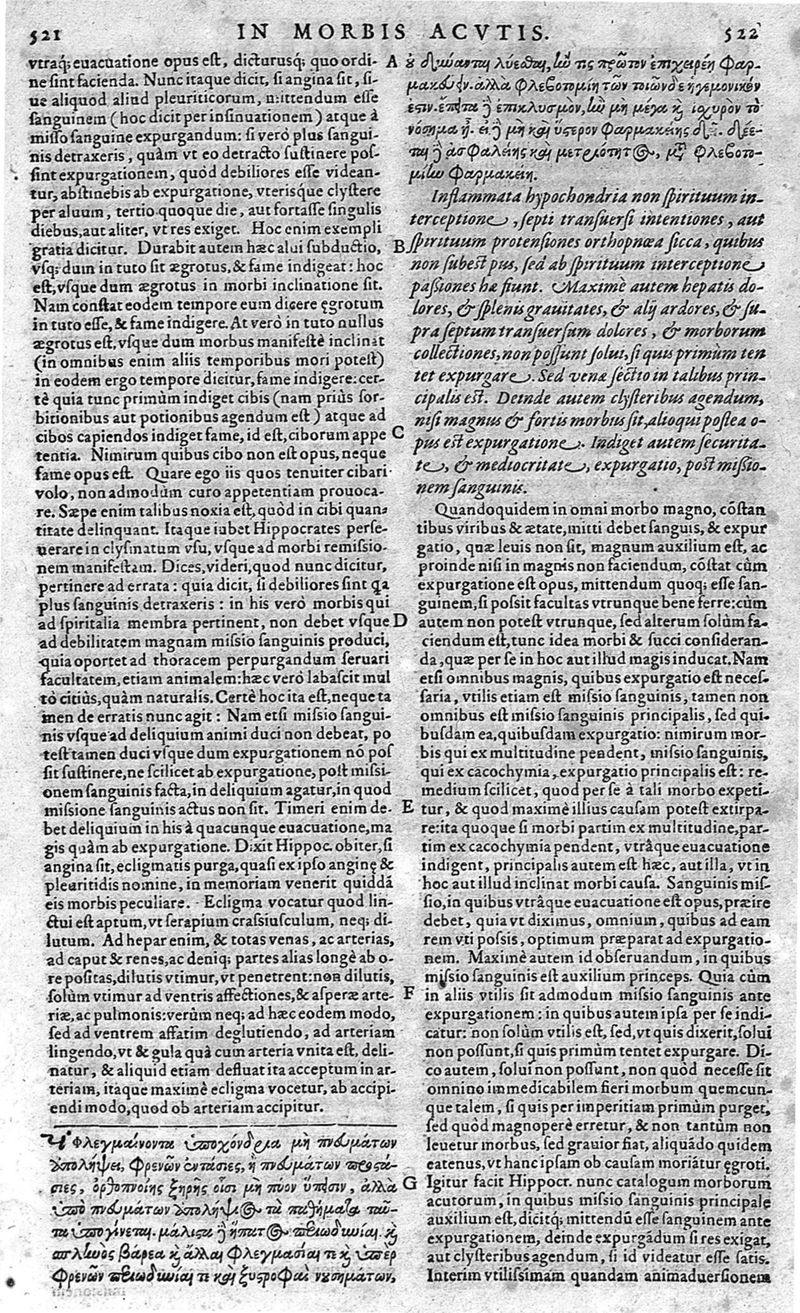 521 IN MORBIS ACVTIS. 522
vtraq; euacuatione opus est, dicturusq; quo ordi-
ne sint facienda. Nunc itaque dicit, si angina sit, si-
ue aliquod aliud pleuriticorum, mittendum esse
sanguinem (hoc dicit per insinuationem) atque à
misso sanguine expurgandum: si verò plus sangui-
nis detraxeris, quàm vt eo detracto sustinere pos-
sint expurgationem, quòd debiliores esse videan-
tur, abstinebis ab expurgatione, vterisque clystere
per aluum, tertio quoque die, aut fortasse singulis
diebus, aut aliter, vt res exiget. Hoc enim exempli
gratia dicitur. Durabit autem hæc alui subductio,
vsq; dum in tuto sit ægrotus, & fame indigeat: hoc
est, vsque dum ægrotus in morbi inclinatione sit.
Nam constat eodem tempore eum dicere ęgrotum
in tuto esse, & fame indigere. At verò in tuto nullus
ægrotus est, vsque dum morbus manifestè inclinat
(in omnibus enim aliis temporibus mori potest)
in eodem ergo tempore dicitur, fame indigere: cer-
tè quia tunc primùm indiget cibis (nam priùs sor-
bitionibus aut potionibus agendum est) atque ad
cibos capiendos indiget fame, id est, ciborum appe
tentia. Nimirum quibus cibo non est opus, neque
fame opus est. Quare ego iis quos tenuiter cibari
volo, non admodùm curo appetentiam prouoca-
re. Sæpe enim talibus noxia est, quòd in cibi quan
titate delinquant. Itaque iubet Hippocrates perse-
uerare in clysmatum vsu, vsque ad morbi remissio-
nem manifestam. Dices, videri, quod nunc dicitur,
pertinere ad errata: quia dicit, si debiliores sint qa
plus sanguinis detraxeris: in his verò morbis qui
ad spiritalia membra pertinent, non debet vsque
ad debilitatem magnam missio sanguinis produci,
quia oportet ad thoracem perpurgandum seruari
facultatem, etiam animalem: hæc verò labascit mul
tò citiùs, quàm naturalis. Certè hoc ita est, neque ta
men de erratis nunc agit: Nam etsi missio sangui-
nis vsque ad deliquium animi duci non debeat, po
test tamen duci vsque dum expurgationem nõ pos
sit sustinere, ne scilicet ab expurgatione, post missi-
onem sanguinis facta, in deliquium agatur, in quod
missione sanguinis actus non sit. Timeri enim de-
bet deliquium in his à quacunque euacuatione, ma
gis quàm ab expurgatione. Dixit Hippoc. obiter, si
angina sit, ecligmatis purga, quasi ex ipso anginę &
pleuritidis nomine, in memoriam venerit quiddã
eis morbis peculiare. Ecligma vocatur quod lin-
ctui est aptum, vt serapium crassiusculum, neq; di-
lutum. Ad hepar enim, & totas venas, ac arterias,
ad caput & renes, ac deniq; partes alias longè ab o-
re positas, dilutis vtimur, vt penetrent: non dilutis,
solùm vtimur ad ventris affectiones, & asperæ arte-
riæ, ac pulmonis: verùm neq; ad hæc eodem modo,
sed ad ventrem affatim deglutiendo, ad arteriam
lingendo, vt & gula quà cum arteria vnita est, deli-
natur, & aliquid etiam defluat ita acceptum in ar-
teriam, itaque maximè ecligma vocetur, ab accipi-
endi modo, quod ob arteriam accipitur.
φλεγμαίνοντα ὑποχόνδρια μὴ πνευμάτων
ἀπολήψει, φρενῶν ἐντάσιες, ἢ πνευμάτων προστά-
σιες, ὀρθοπνοίης ξηρῆς οἷσι μὴ πύον ὕπεστιν, ἀλλὰ
ὑπὸ πνευμάτων ἀπολήψιος τὰ παθήματα ταῦ-
τα ὑπογίνεται. μάλιστα ἢ ἥπατος περιωδυνίαι. καὶ
σπληνὸς βάρεα καὶ ἄλλαι φλεγμασίαι τε καὶ ὑπὲρ
φρενῶν περιωδυνίαι τε καὶ ξυστροφαὶ νουσημάτων,
A
B
C
D
E
F
G
οὐ δύναται λύεσθαι, ἤν τις πρῶτον ἐπιχειρέῃ φαρ-
μακεύειν. ἀλλὰ φλεβοτομίη τῶν τοιῶνδε ἡγεμονικόν
ἐστιν. ἔπειτα ἢ ἐπικλυσμὸν, ἢν μὴ μέγα καὶ ἰσχυρὸν τὸ
νόσημα ᾖ. εἰ ἢ μὴ καὶ ὕστερον φαρμακείης δεῖ. δέε-
ται ἢ ἀσφαλείης καὶ μετριότητος, μετὰ φλεβοτο-
μίην φαρμακείη.
Inflammata hypochondria non spirituum in-
terceptione, septi transuersi intentiones, aut
spirituum protensiones orthopnœa sicca, quibus
non subest pus, sed ab spirituum interceptione
passiones hæ fiunt. Maximè autem hepatis do-
lores, & splenis grauitates, & alij ardores, & su-
pra septum transuersum dolores, & morborum
collectiones, non possunt solui, si quis primùm ten
tet expurgare. Sed venæ sectio in talibus prin-
cipalis est. Deinde autem clysteribus agendum,
nisi magnus & fortis morbus sit, alioqui postea o-
pus est expurgatione. Indiget autem securita-
te, & mediocritate, expurgatio, post missio-
nem sanguinis.
Quandoquidem in omni morbo magno, cõstan
tibus viribus & ætate, mitti debet sanguis, & expur
gatio, quæ leuis non sit, magnum auxilium est, ac
proinde nisi in magnis non faciendum, cõstat cùm
expurgatione est opus, mittendum quoq; esse san-
guinem, si possit facultas vtrunque bene ferre: cùm
autem non potest vtrunque, sed alterum solùm fa-
ciendum est, tunc idea morbi & succi consideran-
da, quæ per se in hoc aut illud magis inducat. Nam
etsi omnibus magnis, quibus expurgatio est neces-
saria, vtilis etiam est missio sanguinis, tamen non
omnibus est missio sanguinis principalis, sed qui-
busdam ea, quibusdam expurgatio: nimirum mor-
bis qui ex multitudine pendent, missio sanguinis,
qui ex cacochymia, expurgatio principalis est: re-
medium scilicet, quod per se à tali morbo expeti-
tur, & quod maximè illius causam potest extirpa-
re: ita quoque si morbi partim ex multitudine, par-
tim ex cacochymia pendent, vtrâque euacuatione
indigent, principalis autem est hæc, aut illa, vt in
hoc aut illud inclinat morbi causa. Sanguinis mis-
sio, in quibus vtrâque euacuatione est opus, præire
debet, quia vt diximus, omnium, quibus ad eam
rem vti possis, optimum præparat ad expurgatio-
nem. Maximè autem id obseruandum, in quibus
missio sanguinis est auxilium princeps. Quia cùm
in aliis vtilis sit admodum missio sanguinis ante
expurgationem: in quibus autem ipsa per se indi-
catur: non solùm vtilis est, sed, vt quis dixerit, solui
non possunt, si quis primùm tentet expurgare. Di-
co autem, solui non possunt, non quòd necesse sit
omnino immedicabilem fieri morbum quemcun-
que talem, si quis per imperitiam primùm purget,
sed quòd magnoperè erretur, & non tantùm non
leuetur morbus, sed grauior fiat, aliquãdo quidem
eatenus, vt hanc ipsam ob causam moriãtur ęgroti.
Igitur facit Hippocr. nunc catalogum morborum
acutorum, in quibus missio sanguinis principale
auxilium est, dicitq; mittendũ esse sanguinem ante
expurgationem, deinde expurgãdum si res exigat,
aut clysteribus agendum, si id videatur esse satis.
Interim vtilissimam quandam animaduersionem